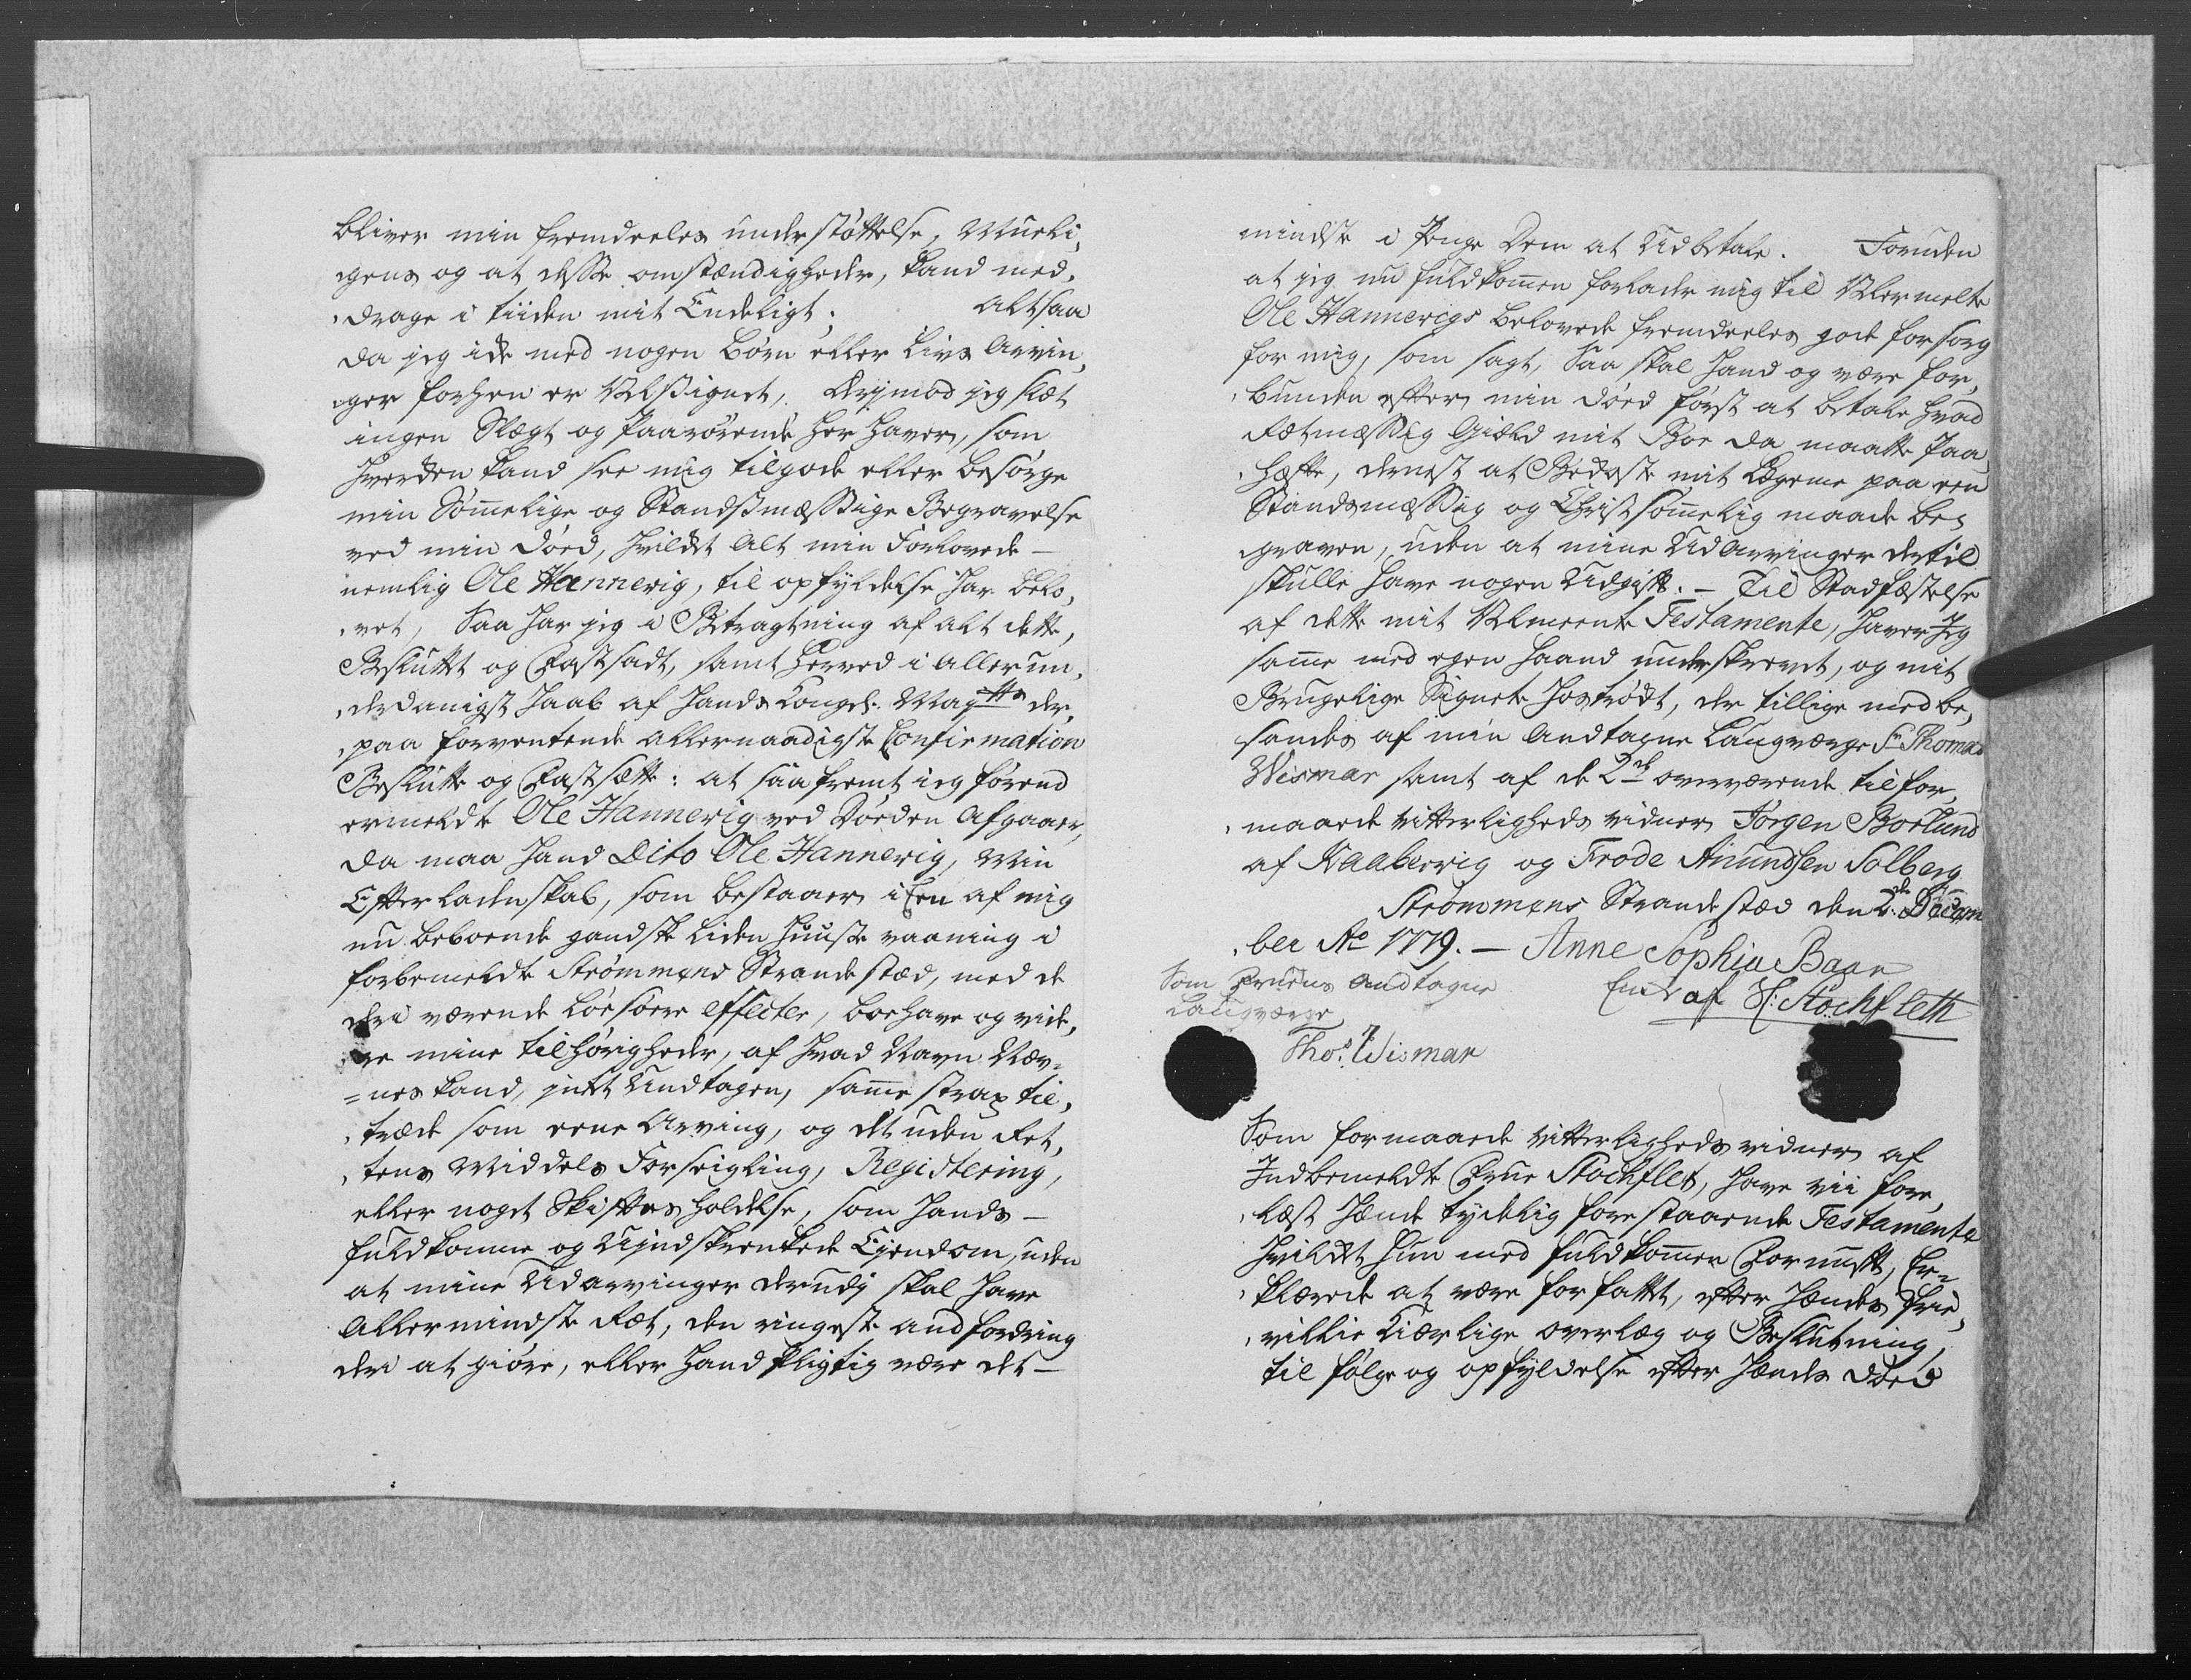 bliver min fremdeeles understøttelse, Mueli¸
¸gens og at desse omstændigheder, kand med¸
¸drage i tiiden mit Endeligt. altsaa
da jeg icke med nogen børn eller Livs Arvin¸
¸ger forhen er Velsignet, Ærimod jeg slet
ingen Slægt og Paarørende her haver, som
hverken kand see mig tilgode eller besørge
min Sømmelige og Standsmæssige Begravelse
ved min Død, hvilket Alt min Forlovede —
nemlig Ole Hannevig, til opfyldelse har belo¸
¸vet, Saa har jeg i Betragtning af alt dette,
Besluttet og Fastsadt, samt herved i Allerun¸
¸derdanigst haab af Hands Kongel: Mayts der¸
¸paa forventende allernaadigste Confirmation
Beslutte og Fastsætte: at saafremt jeg førend
ermeldte Ole Hannevig ved Døden Afgaaer,
da maa Hand Dito Ole Hannevig, Min
Efterladenskab, som bestaaer i Een af mig
nu beboende gandske Liden Huuse vaaning i
forbemeldte Strømmens Strandestæd, med de
deri værende Løesøere effecter, boehave og vide¸
¸re mine tilhørigheder, af hvad Navn Næv¸
=nes kand, intet Undtagen, samme strax til¸
¸træde som eene Arving, og det uden Ret¸
¸tens Middels Forseigling, Registering,
eller noget Skiftes holdelse, som Hands —
fuldkomne og Uindskrenkede Ejendom, uden
at mine Udarvinger derudj skal have
Allermindste Ræt, den ringeste andfordring
deri at giøre, eller Hand pligtig være det —
mindste i Penge Dem at Udbetale. Foruden
at jeg nu fuldkommen forlader mig til Velermelte
Ole Hannevigs belovede fremdeeles gode forsorg
for mig, som sagt, Saa skal Hand og være for¸
¸bunden efter min død først at betale hvad
Rætmæssig Giæld mit Boe da maatte paa¸
¸hefte, dernest at Bekoste mit Legeme paa een
Standsmæssig og Christsømmelig maade be¸
¸graven, uden at mine Udarvinger dertil
skulle have nogen Udgift. — Til Stadfæstelse
af dette mit Velmeente Testamente, haver Jeg
samme med egen Haand underskrevet, og mit
Brugelige Signete hostrøkt, der tillige med be¸
sandes af min Andtagne Laugværge Sr Thomas
Wismar samt af de 2de overværende tilfor¸
¸maaede vitterligheds vidner Jørgen Borlund
af Kaabervig og Frode Anundsen Solberg
Strømmens Strandestæd den 2de Decem
¸ber Ao 1779. — Anne Sophia Baar
Enke af H: Stochfleth
Som Fruens Andtagne
Laugværge
Thos: Wismar
Som formaaede vitterligheds vidner af
Indbemeldte Frue Stochflet, have vii fore¸
¸læst hende tydelig forestaaende Testamente
hvilket hun med fuldkommen Fornuft, Er=
¸klærede at være forfattet, efter hendes frie¸
¸villie kiærlige overlæg og Beslutning
til følge og opfyldelse efter hendes død